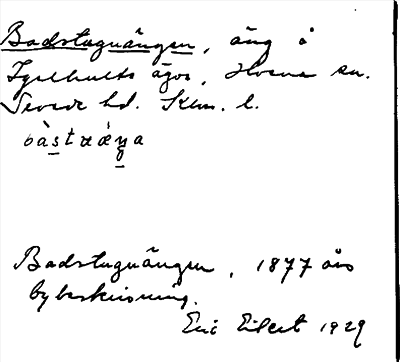 Badstuguängen, äng å
Igelhults ägor, Hvena sn.
Sevede hd. Klm. l.
bàstαǽŋa
Badstuguängen, 1877 års
bybeskrivning.
Eric Eilert 1929